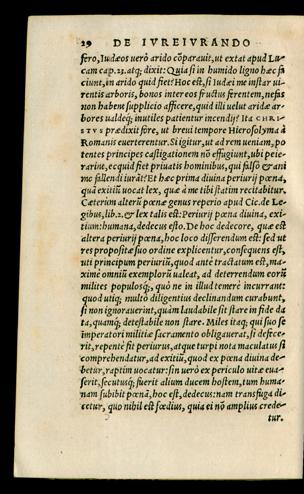 29 DE IVREIVRANDO
fero, Iudæos uerò arido cōparauit, ut extat apud Lu-
cam cap. 23. atq; dixit: Quia si in humido ligno hæc fa
ciunt, in arido quid fiet? Hoc est, si Iudæi me instar ui-
rentis arboris, bonos inter eos fructus ferentem, nefas
non habent supplicio afficere, quid illi uelut aridæ ar-
bores ualdeq; inutiles patientur incendij? Ita CHRI-
STVS prædixit fore, ut breui tempore Hierosolyma à
Romanis euerterentur. Si igitur, ut ad rem ueniam, po
tentes principes castigationem nō effugiunt, ubi peie-
rarint, ecquid fiet priuatis hominibus, qui falsò & ani
mo fallendi iurāt? Et hæc prima diuina periurij pœna,
quā exitiū uocat lex, quæ à me tibi statim recitabitur.
Cæterum alterū pœnæ genus reperio apud Cic. de Le
gibus, lib. 2. & lex talis est: Periurij pœna diuina, exi-
tium: humana, dedecus esto. De hoc dedecore, quæ est
altera periurij pœna, hoc loco differendum est: sed ut
res propositæ suo ordine explicentur, consequens est,
uti principum periuriū, quod ante tractatum est, ma-
ximè omniū exemplorū ualeat, ad deterrendum eorū
milites populosq;, quò ne in illud temerè incurrant:
quod utiq; multo diligentius declinandum curabunt,
si non ignorauerint, quàm laudabile sit stare in fide da
ta, quāmq; detestabile non stare. Miles itaq; qui suo se
imperatori militiæ sacramento obligauerat, si defece-
rit, repentè fit periurus, atque turpi nota maculatus si
comprehendatur, ad exitiū, quod ex pœna diuina de-
betur, raptim uocatur: sin uerò ex periculo uitæ eua-
serit, secutusq; fuerit alium ducem hostem, tum huma-
nam subibit pœnā, hoc est, dedecus: nam transfuga di-
cetur, quo nihil est fœdius, quia ei nō amplius crede-
tur.